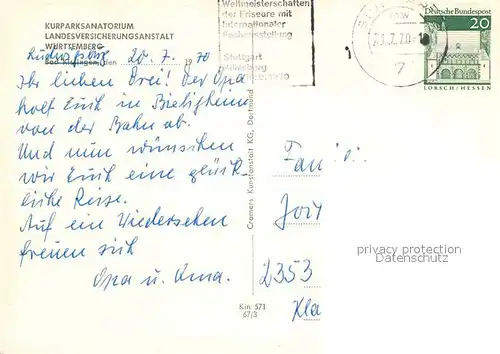 KURPARKSANATORIUM
LANDESVERSICHERUNGSANSTALT
WÜRTTEMBERG
Bad Kissingen, den 19
20. 7. 70
Ihr lieben Drei! Der Opa
holt Euch in Bietigheim
von der Bahn ab.
Und nun wünschen
wir Euch eine glück-
liche Reise.
Auf ein Wiedersehen
freuen sich
Opa u. Oma.
Weltmeisterschaften
der Friseure mit
Internationaler
Fachausstellung
Stuttgart
Killesberg
1970
7
Deutsche Bundespost
20
LORSCH/HESSEN
Cramers Kunstanstalt KG, Dortmund
Kin 571
67/3
2353
privacy protection
Datenschutz